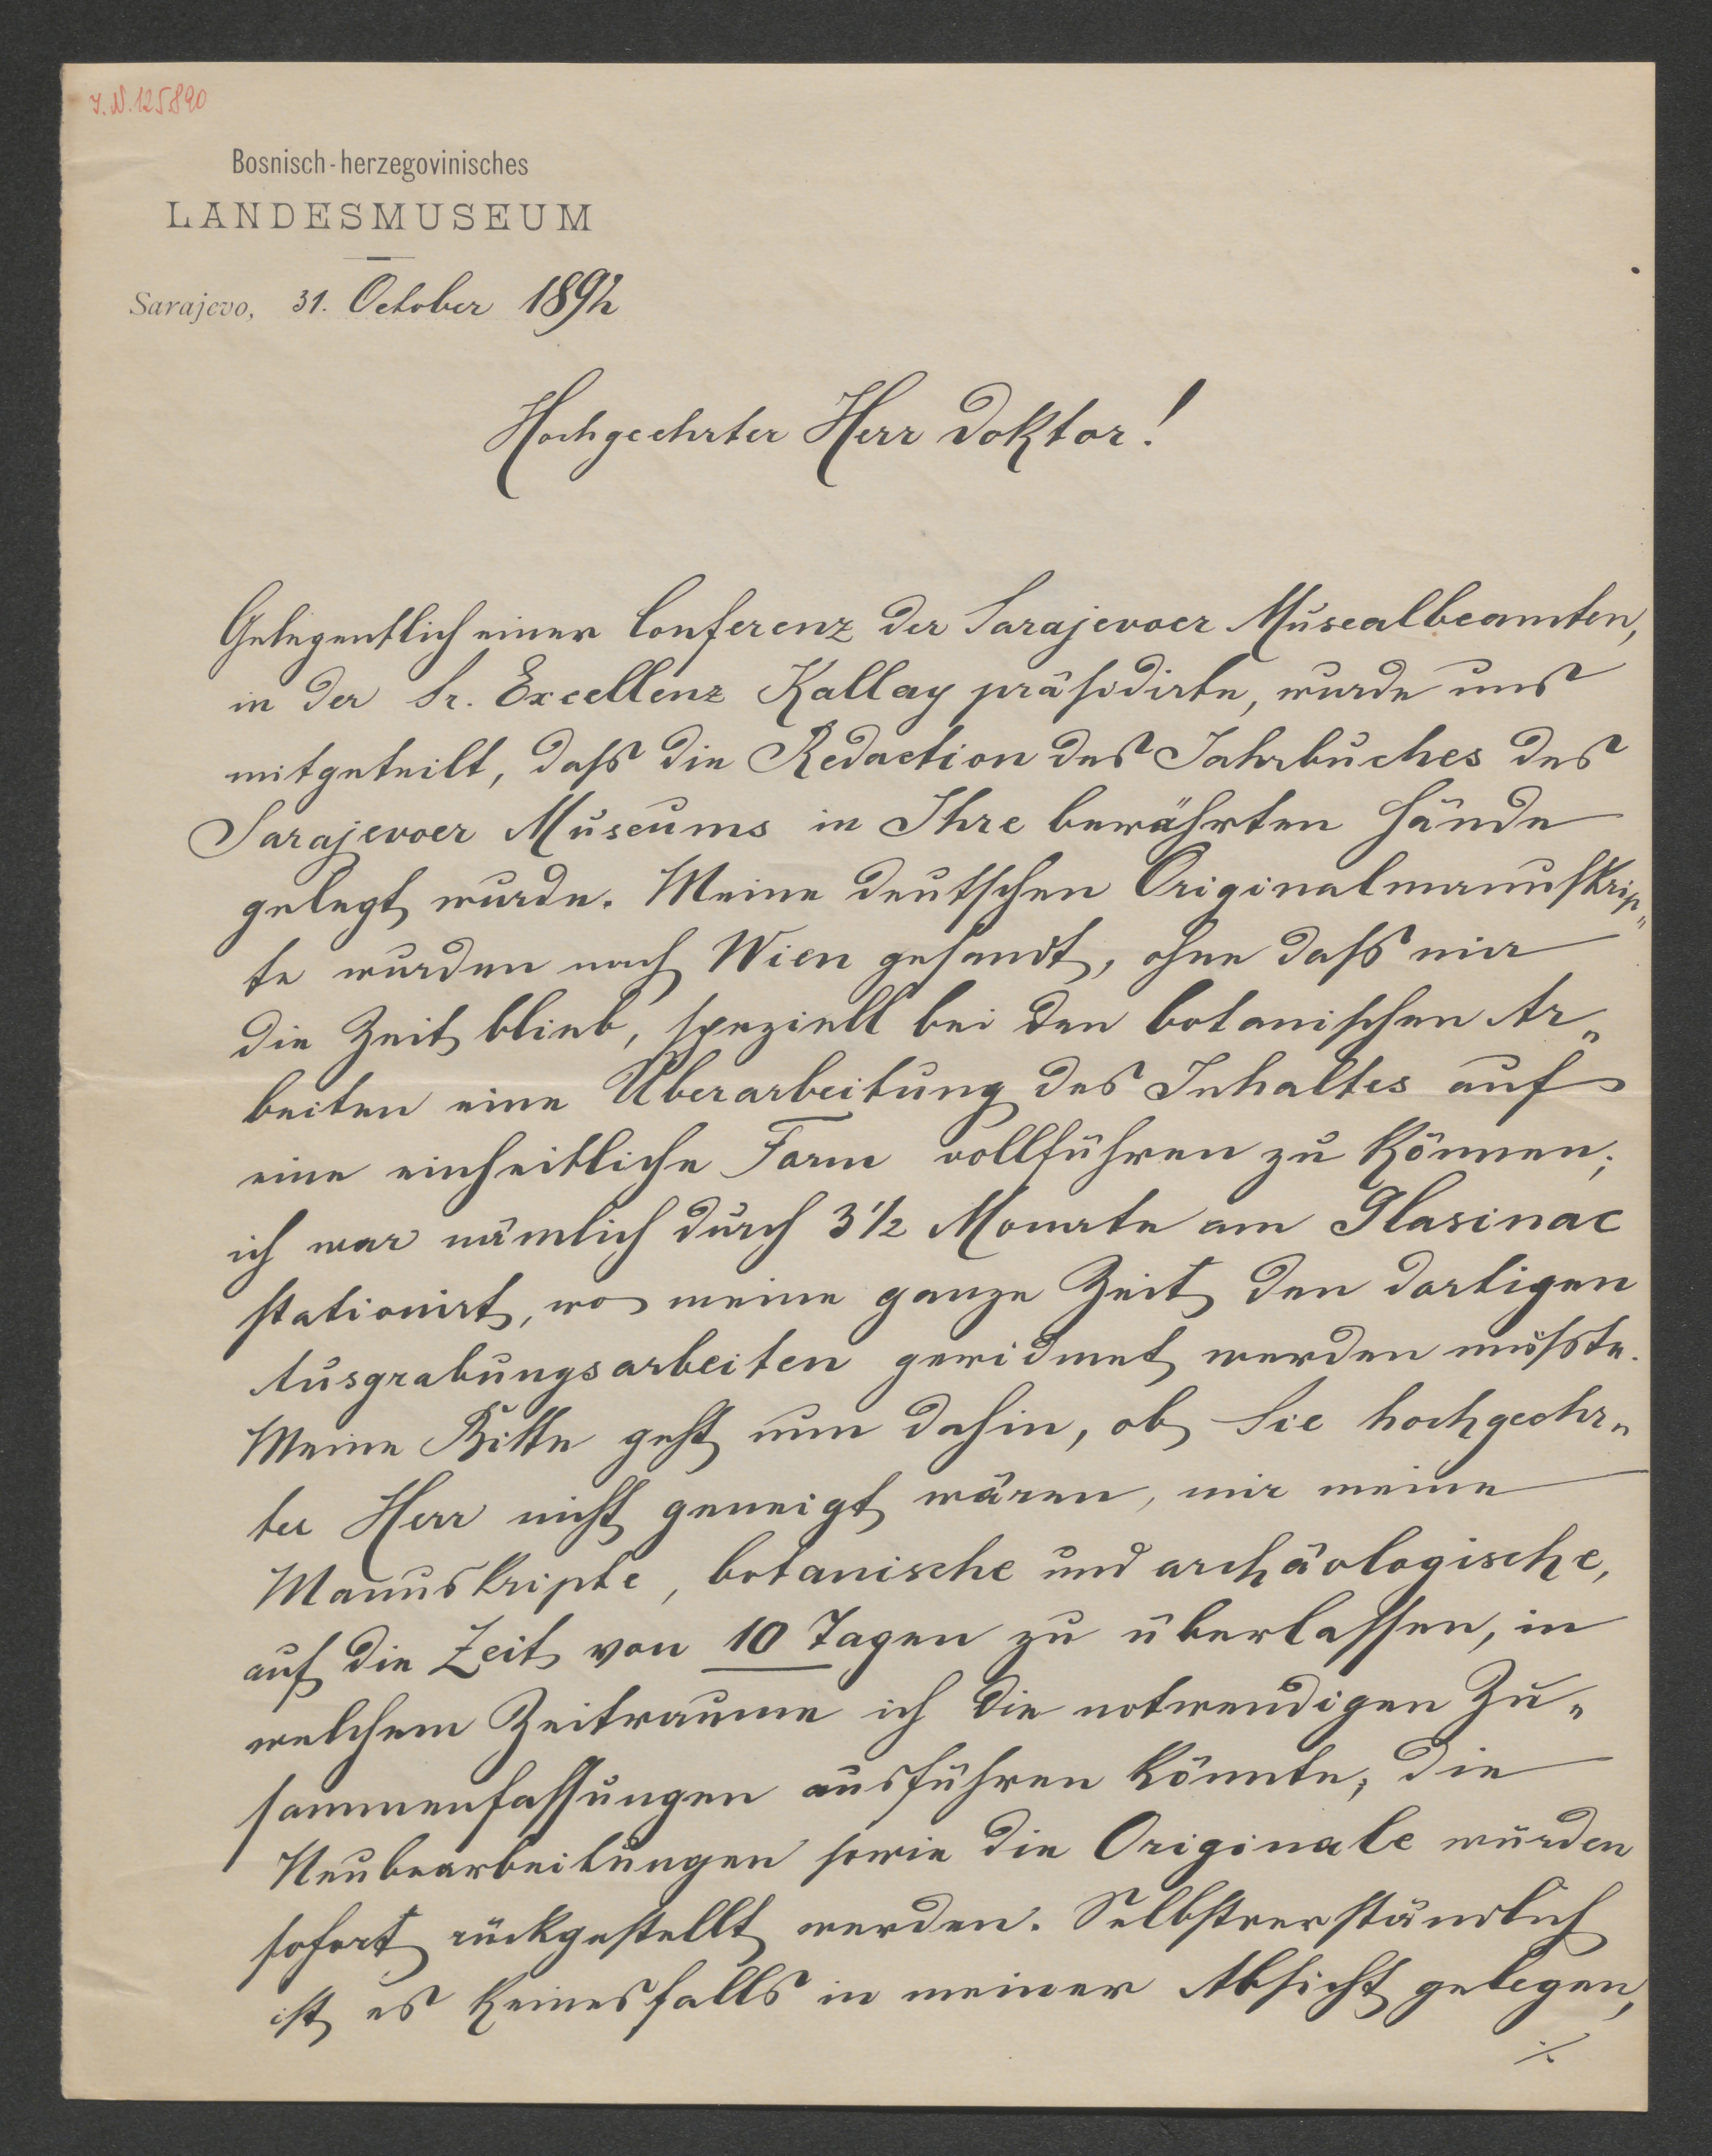 J.N. 125890
Bosnisch-herzegovinisches
LANDESMUSEUM
Sarajevo, 31. October 1892
Hochgeehrter Herr Doktor!
Gelegentlich einer Conferenz der Sarajevoer Musealbeamten,
in der Sr. Excellenz Kallay präsidirte, wurde uns
mitgeteilt, dass die Redaction des Jahrbuches des
Sarajevoer Museums in Ihre bewährten Hände
gelegt wurde. Meine deutschen Originalmanuskrip„
te wurden nach Wien gesandt, ohne dass mir
die Zeit blieb, speziell bei den botanischen Ar„
beiten eine Überarbeitung des Inhaltes auf
eine einheitliche Form vollführen zu können;
ich war nämlich durch 3½ Monate am Glasinac
stationirt, wo meine ganze Zeit den dortigen
Ausgrabungsarbeiten gewidmet werden musste.
Meine Bitte geht nun dahin, ob Sie hochgeehr„
ter Herr nicht geneigt wären, mir meine
Manuskripte, botanische und archäologische,
auf die Zeit von 10 Tagen zu überlassen, in
welchem Zeitraume ich die notwendigen Zu„
sammenfassungen ausführen könnte; die
Neubearbeitungen sowie die Originale würden
sofort rückgestellt werden. Selbstverständlich
ist es keinesfalls in meiner Absicht gelegen,
./.